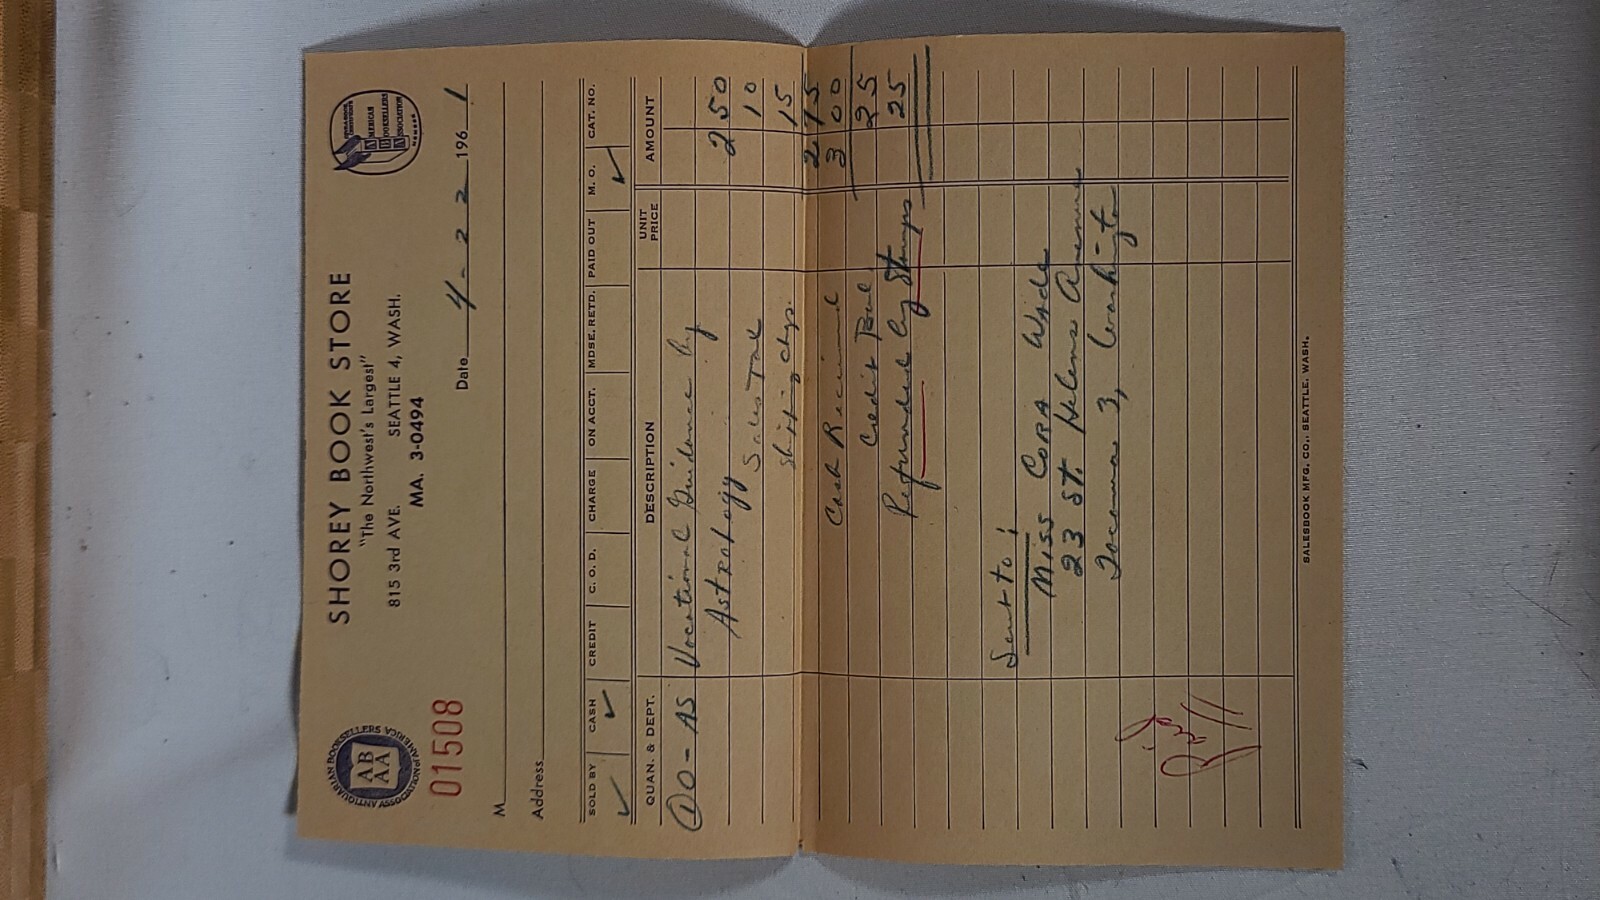 ANTIQUARIAN BOOKSELLERS ASSOCIATION of AMERICA
AB
AA
AMERICAN
BOOKSELLERS
ASSOCIATION
MEMBER
SHOREY BOOK STORE
"The Northwest's Largest"
815 3rd AVE. SEATTLE 4, WASH.
MA. 3-0494
01508
Date 4-22 1961
M
Address
SOLD BY CASH CREDIT C. O. D. CHARGE ON ACCT. MDSE. RETD. PAID OUT M. O. CAT. NO.
✓ ✓ ✓
QUAN. & DEPT. DESCRIPTION UNIT PRICE AMOUNT
① O-AS Vocational Guidance by
Astrology 2 50
Sales Tax 10
Shipping chgs. 15
2 75
Cash Received 3 00
Credit Bal. 25
Refunded by Stamps 25
Sent to:
Miss CORA Wade
23 St. Helens Avenue
Tacoma 3, Washington
SALESBOOK MFG. CO., SEATTLE, WASH.